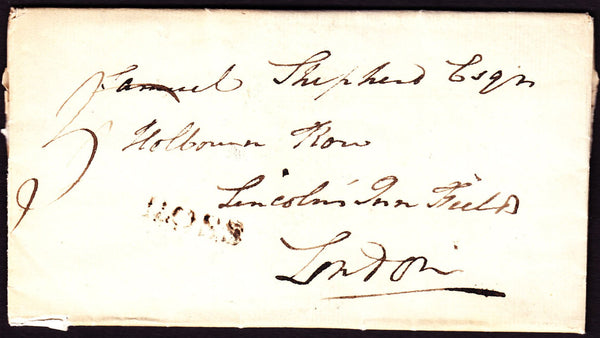 Samuel Shepherd Esqr
Holbourn Row
Lincoln's Inn Fields
ROSS
London